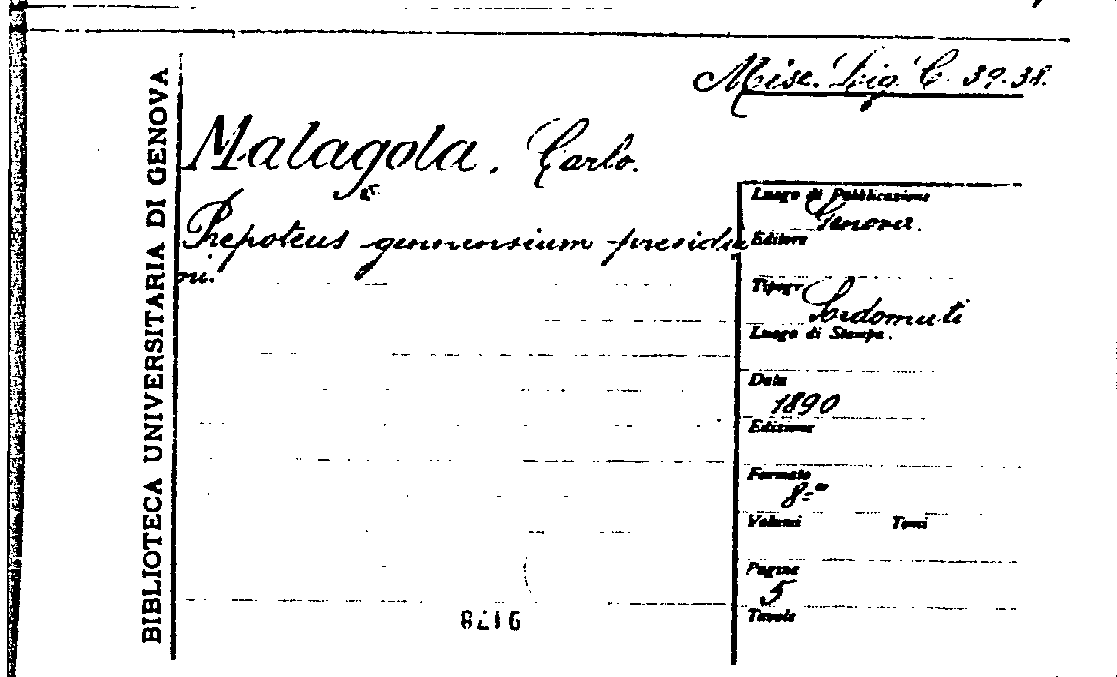 Misc. Lig. C. 39.38.
BIBLIOTECA UNIVERSITARIA DI GENOVA
Malagola. Carlo.
Prepoteus genuensium presidia
ni.
Luogo di Pubblicazione
Genova.
Editore
Tipogr
Sordomuti
Luogo di Stampa.
Data
1890
Edizione
Formato
8=°
Volumi Tomi
Pagine
5
Tavole